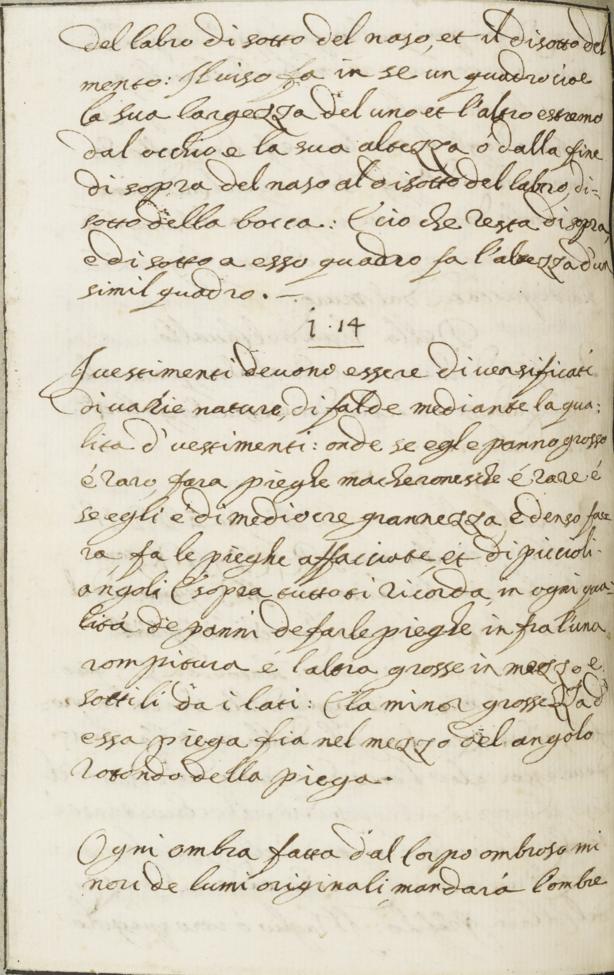 del labro di sotto del naso, et il disotto del
mento: Il uiso fa in se un quadro cioe
la sua largezza del uno et l'altro estremo
dal occhio e la sua altezza ó dalla fine
di sopra del naso al disotto del labro, di=
sotto della bocca: E cio che resta di sopra,
e di sotto a esso quadro fa l'altezza d'un
simil quadro. —
1.14
I uestimenti deuono essere diuersificati
di uarie nature, di falde mediante la qua:
lita d'uestimenti: onde se egl'e panno grosso
é raro, fara pieghe macheronesche é rare é
se egli é di mediocre grannezza e denso fara
ra, fa le pieghe affacciate, et di piccioli
angoli E sopra tutto ti ricorda, in ogni qua:
litá de panni de far le pieghe in fra l'una
rompitura é l'altra grosse in mezzo e
sottili da i lati: E la minor grossezza d'
essa piega fia nel mezzo del angolo
rotondo della piega.
Ogni ombra fatta dal corpo ombroso mi
nori de lumi originali, mandará l'ombre